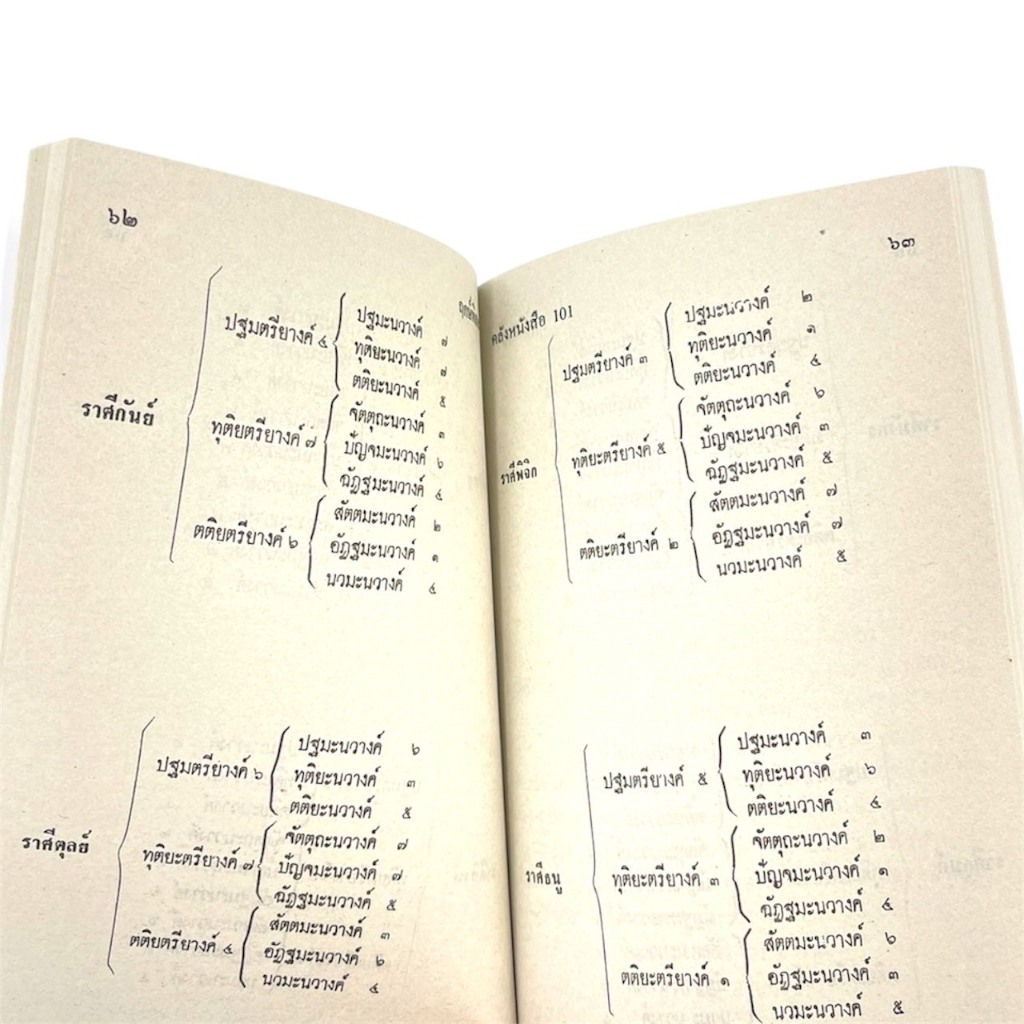 ๖๒
ปฐมตรียางค์ ๔
ปฐมะนวางค์ ๗
ทุติยะนวางค์ ๗
ตติยะนวางค์ ๕
ราศีกันย์
ทุติยตรียางค์ ๗
จัตตุถะนวางค์ ๓
ปัญจมะนวางค์ ๖
ฉัฏฐมะนวางค์ ๔
ตติยตรียางค์ ๖
สัตตมะนวางค์ ๒
อัฏฐมะนวางค์ ๑
นวมะนวางค์ ๔
ปฐมตรียางค์ ๖
ปฐมะนวางค์ ๖
ทุติยะนวางค์ ๓
ตติยะนวางค์ ๕
ราศีตุลย์
ทุติยะตรียางค์ ๗
จัตตุถะนวางค์ ๗
ปัญจมะนวางค์ ๗
ฉัฏฐมะนวางค์ ๕
ตติยตรียางค์ ๔
สัตตมะนวางค์ ๓
อัฏฐมะนวางค์ ๖
นวมะนวางค์ ๔
๖๓
คลังหนังสือ 101
ปฐมตรียางค์ ๓
ปฐมะนวางค์ ๒
ทุติยะนวางค์ ๑
ตติยะนวางค์ ๔
ราศีพิจิก
ทุติยะตรียางค์ ๕
จัตตุถะนวางค์ ๖
ปัญจมะนวางค์ ๓
ฉัฏฐมะนวางค์ ๕
ตติยะตรียางค์ ๒
สัตตมะนวางค์ ๗
อัฏฐมะนวางค์ ๗
นวมะนวางค์ ๕
ปฐมตรียางค์ ๕
ปฐมะนวางค์ ๓
ทุติยะนวางค์ ๖
ตติยะนวางค์ ๔
ราศีธนู
ทุติยะตรียางค์ ๓
จัตตุถะนวางค์ ๒
ปัญจมะนวางค์ ๑
ฉัฏฐมะนวางค์ ๔
ตติยะตรียางค์ ๑
สัตตมะนวางค์ ๖
อัฏฐมะนวางค์ ๓
นวมะนวางค์ ๕